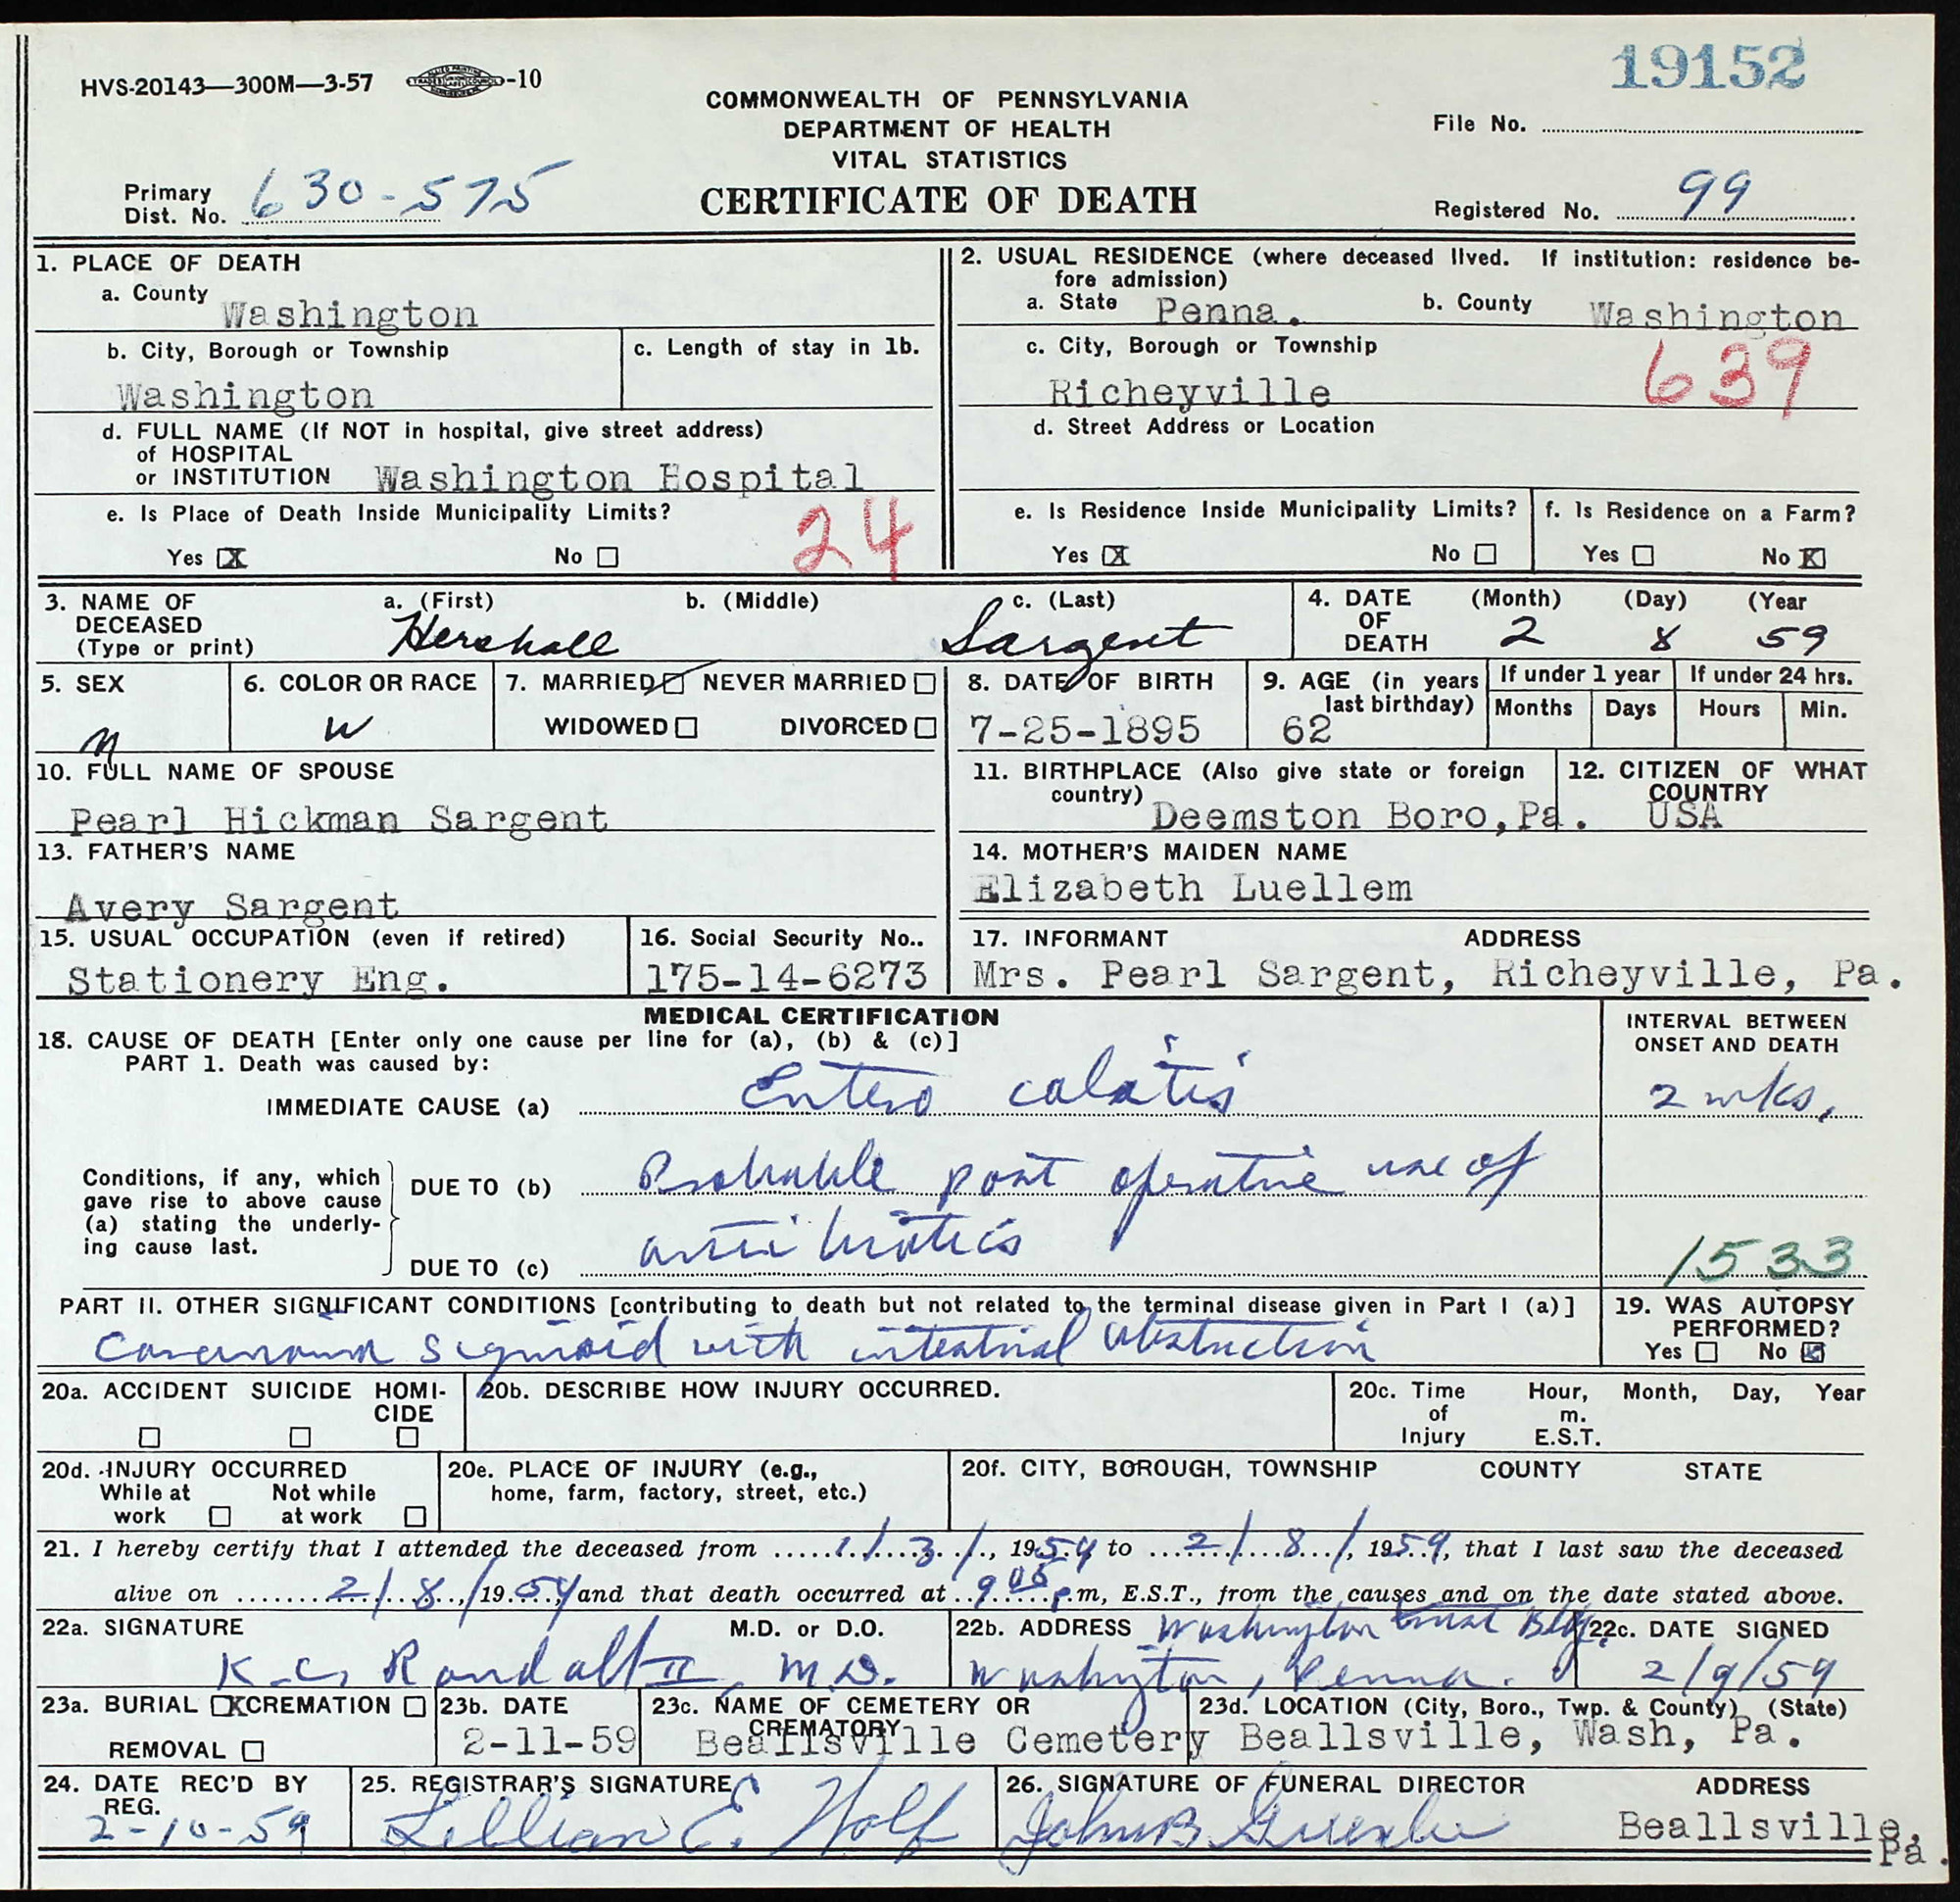 19152
HVS-20143—300M—3-57 -10
COMMONWEALTH OF PENNSYLVANIA
DEPARTMENT OF HEALTH
VITAL STATISTICS
CERTIFICATE OF DEATH
File No.
Primary Dist. No. 630-575
Registered No. 99
1. PLACE OF DEATH
a. County Washington
b. City, Borough or Township Washington
c. Length of stay in 1b.
d. FULL NAME (If NOT in hospital, give street address)
of HOSPITAL
or INSTITUTION Washington Hospital
e. Is Place of Death Inside Municipality Limits?
Yes X No
24
2. USUAL RESIDENCE (where deceased lived. If institution: residence be-
fore admission)
a. State Penna. b. County Washington
c. City, Borough or Township
Richeyville 639
d. Street Address or Location
e. Is Residence Inside Municipality Limits? f. Is Residence on a Farm?
Yes X No Yes No X
3. NAME OF DECEASED (Type or print)
a. (First) b. (Middle) c. (Last)
Hershall Sargent
4. DATE OF DEATH (Month) (Day) (Year
2 8 59
5. SEX M
6. COLOR OR RACE W
7. MARRIED NEVER MARRIED
WIDOWED DIVORCED
8. DATE OF BIRTH 7-25-1895
9. AGE (in years last birthday) 62
If under 1 year If under 24 hrs.
Months Days Hours Min.
10. FULL NAME OF SPOUSE
Pearl Hickman Sargent
11. BIRTHPLACE (Also give state or foreign country) Deemston Boro,Pa.
12. CITIZEN OF WHAT COUNTRY USA
13. FATHER'S NAME
Avery Sargent
14. MOTHER'S MAIDEN NAME
Elizabeth Luellem
15. USUAL OCCUPATION (even if retired)
Stationery Eng.
16. Social Security No..
175-14-6273
17. INFORMANT ADDRESS
Mrs. Pearl Sargent, Richeyville, Pa.
MEDICAL CERTIFICATION
18. CAUSE OF DEATH [Enter only one cause per line for (a), (b) & (c)]
PART 1. Death was caused by:
INTERVAL BETWEEN
ONSET AND DEATH
IMMEDIATE CAUSE (a) Entero colitis 2 wks.
Conditions, if any, which
gave rise to above cause
(a) stating the underly-
ing cause last.
DUE TO (b) Probable post operative use of
DUE TO (c) antibiotics
1533
PART II. OTHER SIGNIFICANT CONDITIONS [contributing to death but not related to the terminal disease given in Part I (a)]
Carcinoma sigmoid with intestinal obstruction
19. WAS AUTOPSY PERFORMED?
Yes No X
20a. ACCIDENT SUICIDE HOMI-
CIDE
20b. DESCRIBE HOW INJURY OCCURRED.
20c. Time of Injury Hour, Month, Day, Year
m.
E.S.T.
20d. INJURY OCCURRED
While at work Not while at work
20e. PLACE OF INJURY (e.g.,
home, farm, factory, street, etc.)
20f. CITY, BOROUGH, TOWNSHIP COUNTY STATE
21. I hereby certify that I attended the deceased from 1/3/, 1959 to 2/8/, 1959, that I last saw the deceased
alive on 2/8/1959 and that death occurred at 9 05 p.m, E.S.T., from the causes and on the date stated above.
22a. SIGNATURE M.D. or D.O.
K.C. Randall II, M.D.
22b. ADDRESS Washington Trust Bldg.
Washington, Penna.
22c. DATE SIGNED
2/9/59
23a. BURIAL X CREMATION
REMOVAL
23b. DATE
2-11-59
23c. NAME OF CEMETERY OR
CREMATORY
Beallsville Cemetery
23d. LOCATION (City, Boro., Twp. & County) (State)
Beallsville, Wash, Pa.
24. DATE REC'D BY REG.
2-10-59
25. REGISTRAR'S SIGNATURE
Lillian E. Wolf
26. SIGNATURE OF FUNERAL DIRECTOR ADDRESS
John B Beallsville,
Pa.